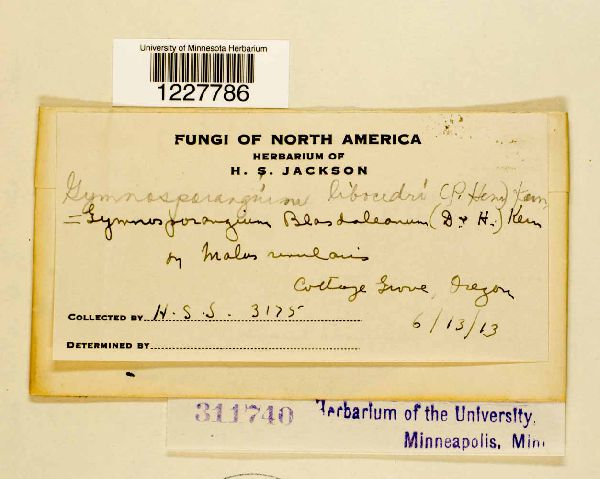 University of Minnesota Herbarium
1227786
FUNGI OF NORTH AMERICA
HERBARIUM OF
H. S. JACKSON
Gymnosporangium libocedri (P. Henn) Kern
= Gymnosporangium Blasdaleanum (D & H.) Kern
on Malus rivularis
Cottage Grove, Oregon
COLLECTED BY H. S. J. 3175
6/13/13
DETERMINED BY
311740 Herbarium of the University,
Minneapolis, Min